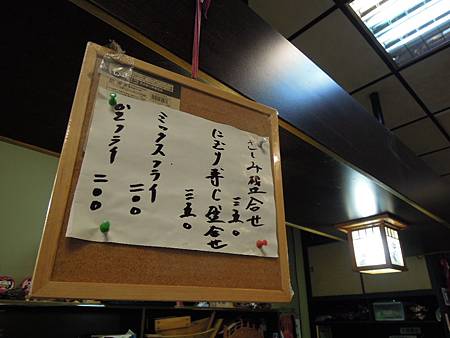 さしみ盛合せ
三五〇
にぎり寿し盛合せ
三五〇
ミックスフライ
二〇〇
フライ
二〇〇